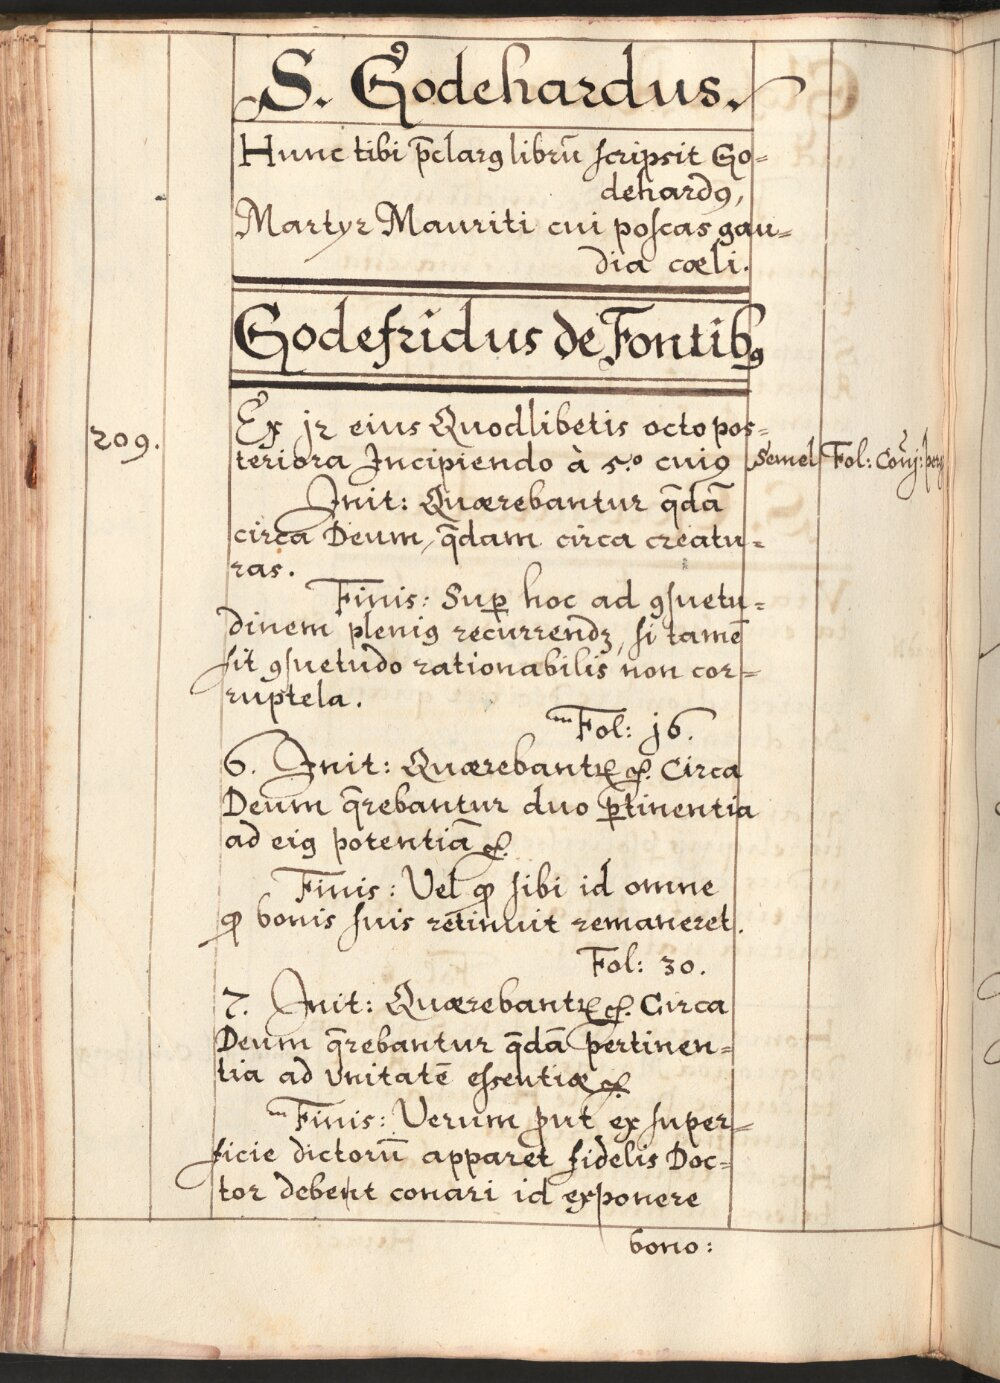 S. Godehardus.
Hunc tibi p̄clarꝯ librū scripsit Go=
dehardꝯ,
Martyr Mauriti cui poscas gau=
dia cœli.
Godefridus de Fontibꝯ
209.
Ex j2 eius Quodlibetis octo pos=
teriora Incipiendo à 5.º cuiꝯ Semel Fol:
Init: Quærebantur q̄dā
circa Deum, q̄dam circa creatu=
ras.
Finis: Sup̱ hoc ad ꝯsuetu=
dinem pleniꝯ recurrendꝫ, si tamē
sit ꝯsuetudo rationabilis non cor=
ruptela.
Fol: j6.
6. Init: Quærebantꝛ &. Circa
Deum q̄rebantur duo ꝑtinentia
ad eiꝯ potentiā &.
Finis: Vel ꝙ sibi id omne
ꝙ bonis suis retinuit remaneret.
Fol: 30.
7. Init: Quærebantꝛ &. Circa
Deum q̄rebantur q̄dā pertinen=
tia ad vnitatē essentiæ &
Finis: Verum ꝓut ex super=
ficie dictorū apparet fidelis Doc=
tor debent conari id exponere
bono: